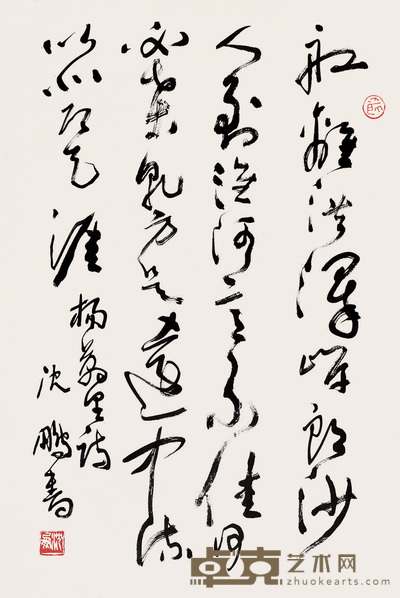 船離洪澤岸頭沙
人到淮河意不佳何
必桑乾方是遠中流
以北即天涯 楊萬里詩
沈鵬書
卓克艺术网
zhuokearts.com